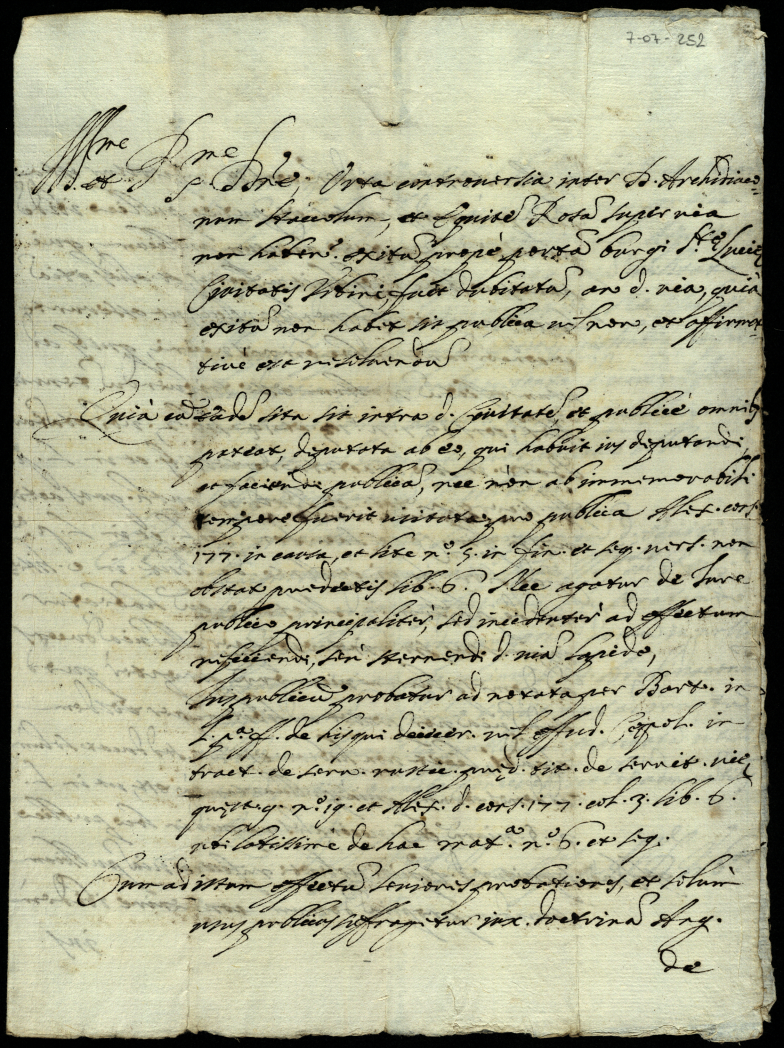 7-07-252
Ill.me et R.me
D.ne, Orta controversia inter D. Archidiaco=
num Staccolum, et Equitē Rosā super via
non haben. exitū propè portā burgi S.te Lucię
Civitatis Urbini fuit dubitatū, an d. via, quià
exitū non habet sit publica vel non, et affirma
tivè est resolvendū
Quià cū eadē sita sit intra d. Civitatē et publicè omnib.
pateat, deputata ab eo, qui habuit ius deputandi,
et faciendi publicā, nec non ab immemorabili
tempore fuerit usitata pro publica Alex. cons.
177. in causa, et lite n.º 5. in fin. et seq. vers. non
obstat predictis lib. 6. Nec agatur de Iure
publico principaliter, sed incidenter ad effectum
reficiendi, seu sternendi d. viā lapide,
Ius publicū probatur ad notata per Bart. in
l. p.ª ff. de his qui deiecer. vel effud. Cępol. in
tract. de serv. rustic. pręd. tit. de servit. vię
quęst. 9. n.º 19. et Alex. d. cons. 177. col. 3. lib. 6.
ubi latissimè de hac mat.ª n.º 6. et seq.
Cum ad istum effectū leviores probationes, et solùm
usus publicus suffragetur iux. doctrinā Ang.
de